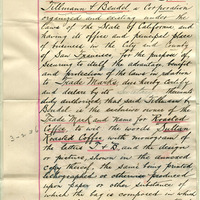 Tillmann & Bendel a Corporation
organized and existing under the
Laws of the State of California and
having its office and principal place
of business in the City and County
of San Francisco for the purpose of
securing to itself the advantage benefit
and protection of the laws in relation
to Trade Marks, does hereby certify
and declare by its
duly authorized that said Tillmann &
Bendel is the exclusive owner of the
Trade Mark and name for Roasted
Coffee to wit the words Sultan
Roasted Coffee with monogram
the letters T & B and the designs
or picture, shown on the annexed
copy thereof, the same being printed
lithographed or otherwise produced
upon paper or other substance of
which the bag is composed in which